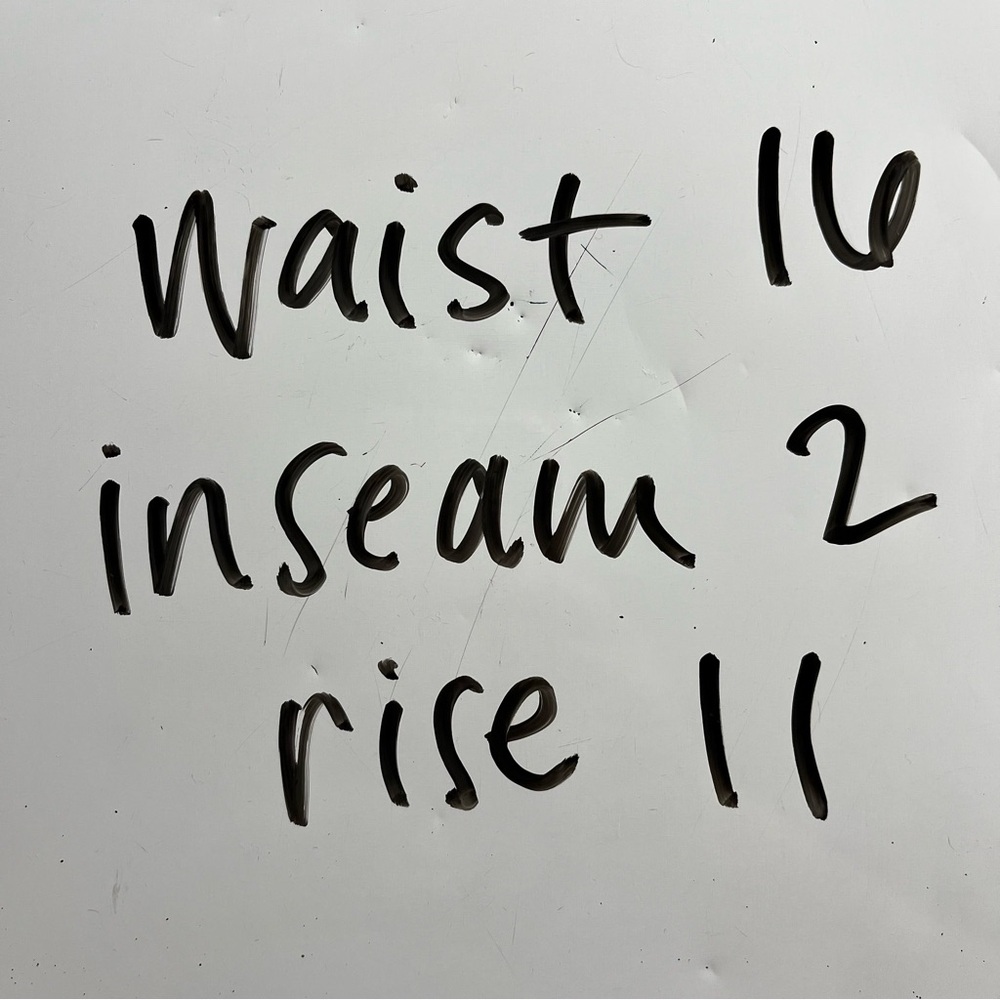 waist 16
inseam 2
rise 11